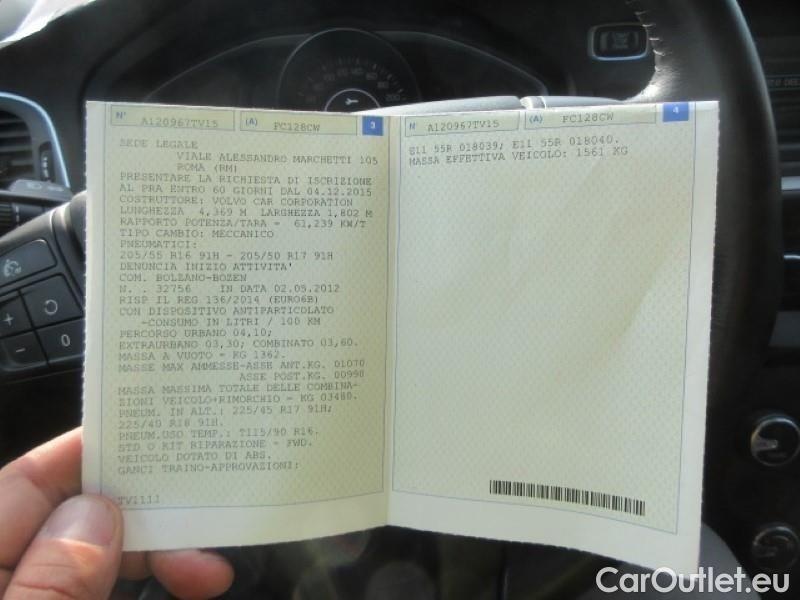 N° A120967TV15 (A) FC128CW 3
SEDE LEGALE
VIALE ALESSANDRO MARCHETTI 105
ROMA (RM)
PRESENTARE LA RICHIESTA DI ISCRIZIONE
AL PRA ENTRO 60 GIORNI DAL 04.12.2015
COSTRUTTORE: VOLVO CAR CORPORATION
LUNGHEZZA 4,369 M LARGHEZZA 1,802 M
RAPPORTO POTENZA/TARA = 61,239 KW/T
TIPO CAMBIO: MECCANICO
PNEUMATICI:
205/55 R16 91H - 205/50 R17 91H
DENUNCIA INIZIO ATTIVITA'
COM. BOLZANO-BOZEN
N. . 32756 IN DATA 02.05.2012
RISP IL REG 136/2014 (EURO6B)
CON DISPOSITIVO ANTIPARTICOLATO
-CONSUMO IN LITRI / 100 KM
PERCORSO URBANO 04,10;
EXTRAURBANO 03,30; COMBINATO 03,60.
MASSA A VUOTO - KG 1362.
MASSE MAX AMMESSE-ASSE ANT.KG. 01070
ASSE POST.KG. 00990
MASSA MASSIMA TOTALE DELLE COMBINA-
ZIONI VEICOLO+RIMORCHIO - KG 03480.
PNEUM. IN ALT.: 225/45 R17 91H;
225/40 R18 91H.
PNEUM.USO TEMP.: T115/90 R16.
STD O KIT RIPARAZIONE - FWD.
VEICOLO DOTATO DI ABS.
GANCI TRAINO-APPROVAZIONI:
TV1111
N° A120967TV15 (A) FC128CW 4
E11 55R 018039; E11 55R 018040.
MASSA EFFETTIVA VEICOLO: 1561 KG
CarOutlet.eu